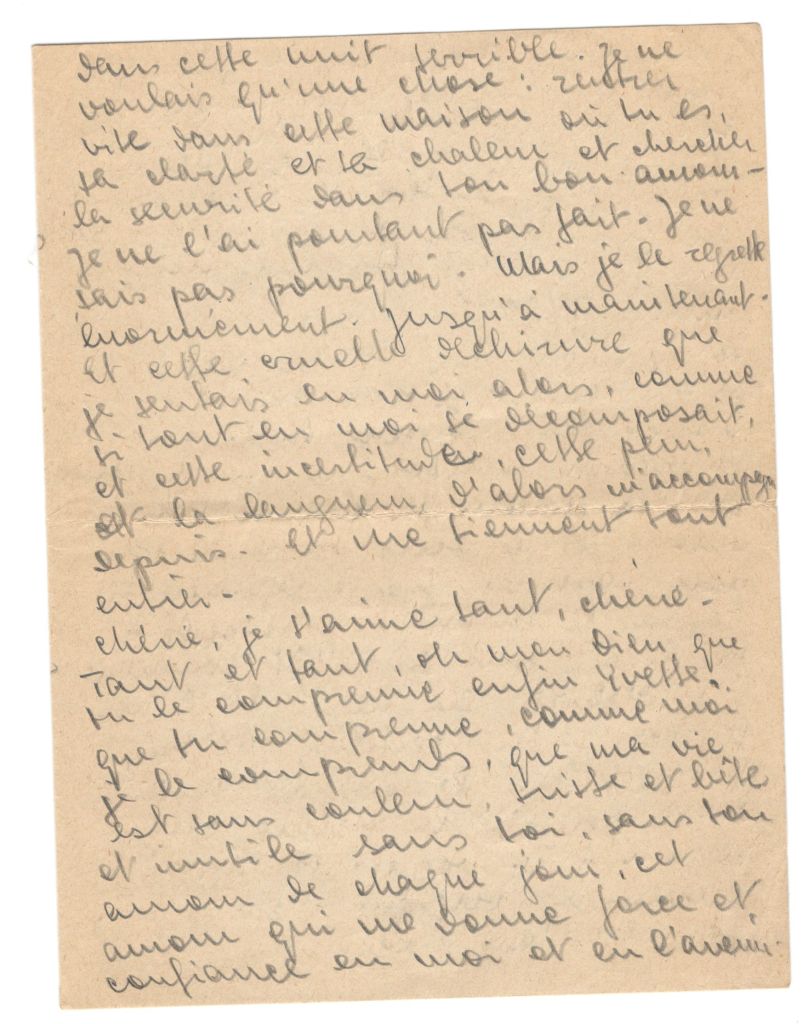 dans cette nuit terrible. Je ne
voulais qu'une chose : rentrer
vite dans cette maison où tu es,
sa clarté et sa chaleur et chercher
la securité dans ton bon amour -
Je ne l'ai pourtant pas fait. Je ne
sais pas pourquoi. Mais je le regrette
énormément. Jusqu'à maintenant.
Et cette cruelle déchirure que
je sentais en moi alors, comme
si tout en moi se décomposait,
et cette incertitude, cette peur,
et la langueur d'alors m'accompagn
depuis. Et me tiennent tout
entier.
chérie, je t'aime tant, chérie -
Tant et tant, oh mon Dieu que
tu le comprenne enfin Yvette.
que tu comprenne, comme moi
je le comprends, que ma vie
est sans couleur, triste et bête
et inutile sans toi, sans ton
amour de chaque jour, cet
amour qui me donne force et
confiance en moi et en l'avenir.